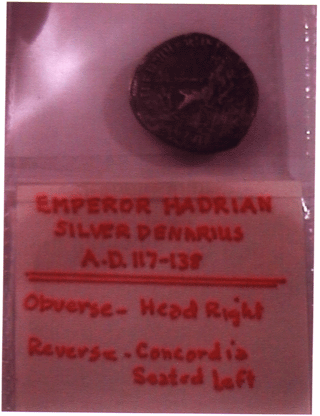 EMPEROR HADRIAN
SILVER DENARIUS
A.D. 117-138
Obverse- Head Right
Reverse- Concordia
Seated Left